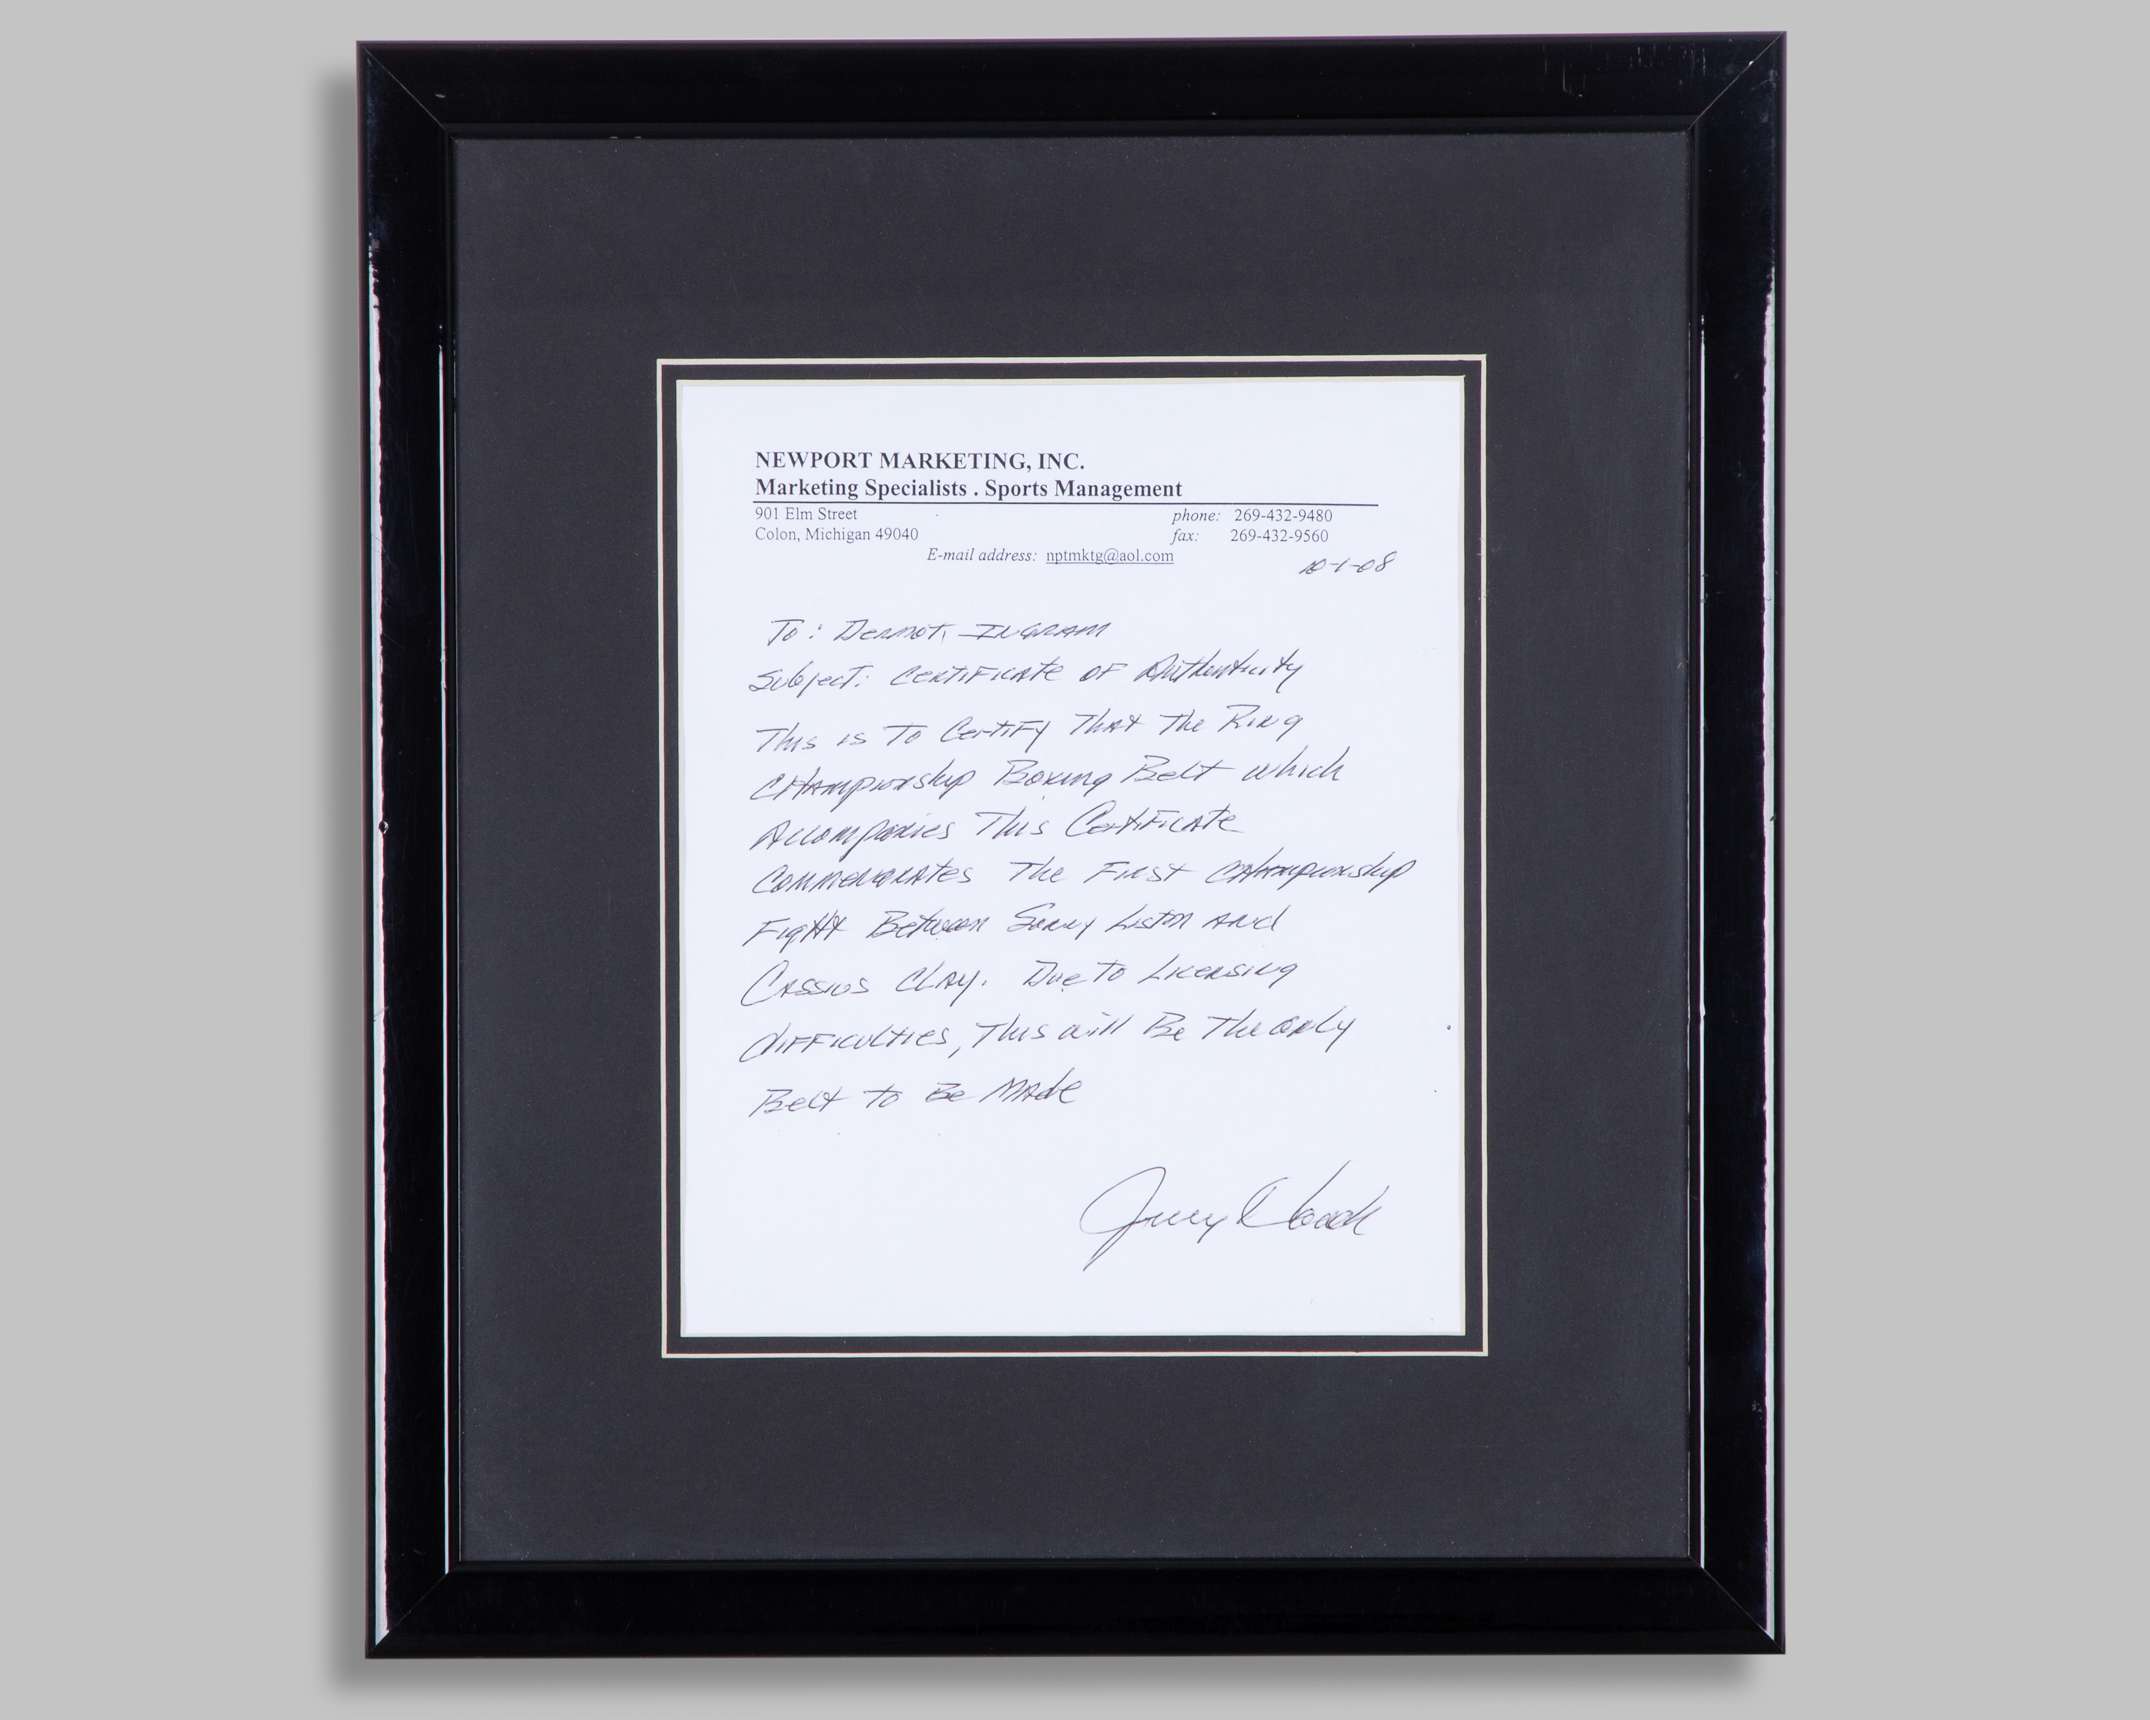 NEWPORT MARKETING, INC.
Marketing Specialists . Sports Management
901 Elm Street phone: 269-432-9480
Colon, Michigan 49040 fax: 269-432-9560
E-mail address: nptmktg@aol.com
10-1-08
To: Dermot Ingram
Subject: Certificate of Authenticity
This is To Certify That The Ring
Championship Boxing Belt which
Accompanies This Certificate
Commemorates The First Championship
Fight Between Sonny Liston And
Cassius Clay. Due To Licensing
difficulties, This will Be The only
Belt To Be Made
Jerry